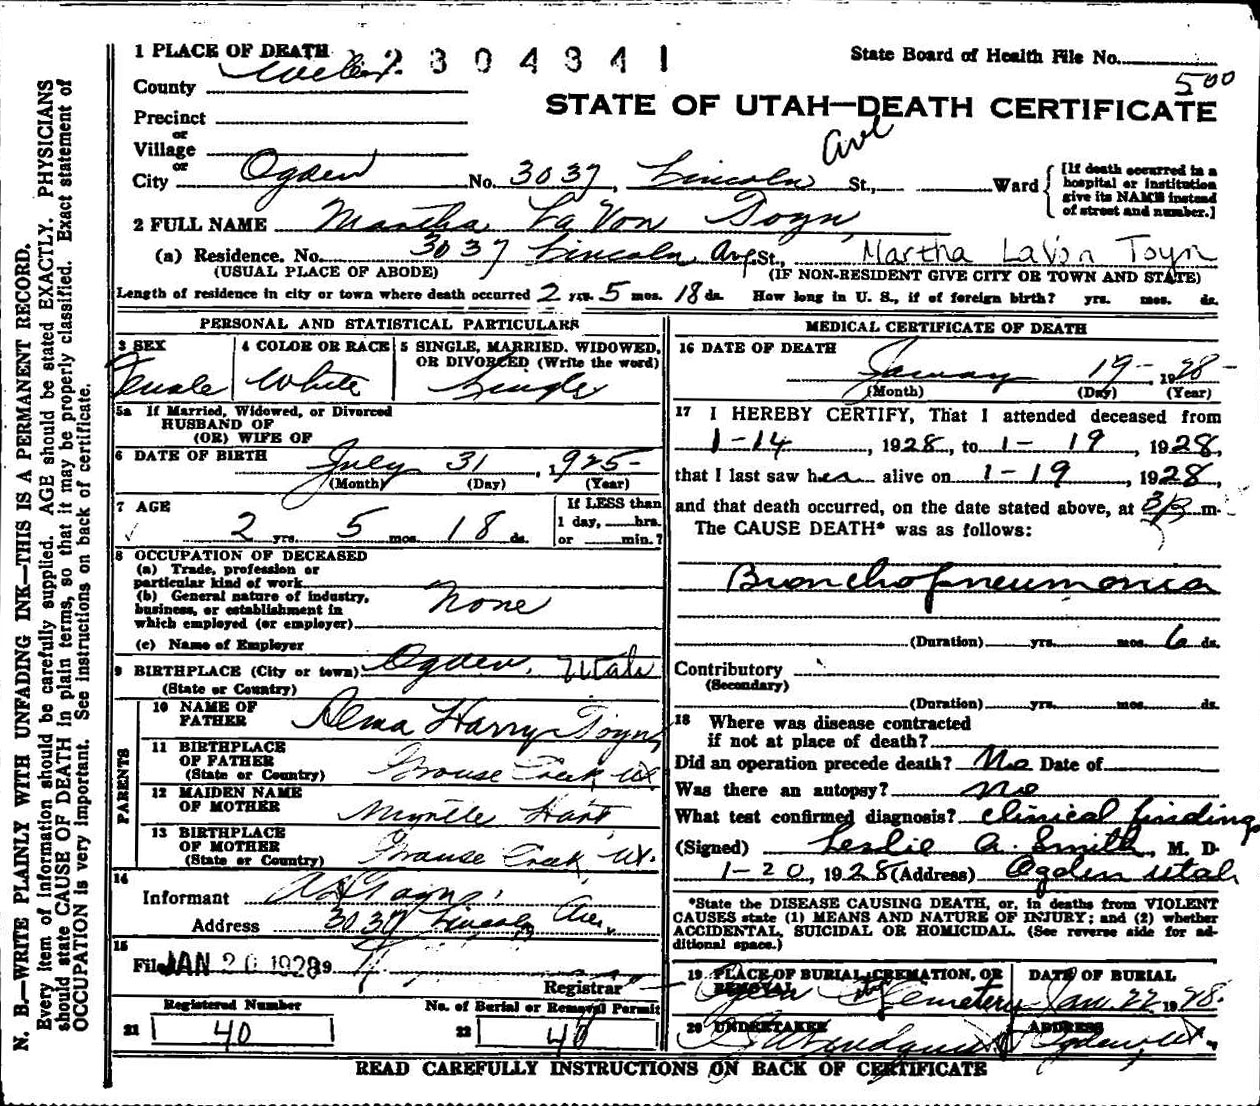 1 PLACE OF DEATH 2 3 0 4 3 4 1 State Board of Health File No.
County Weber 5 00
STATE OF UTAH—DEATH CERTIFICATE
Precinct
or
Village
or
City Ogden No. 3037, Lincoln Ave St., Ward
[If death occurred in a hospital or institution give its NAME instead of street and number.]
2 FULL NAME Martha LaVon Toyn,
(a) Residence. No. 3037 Lincoln Ave. St., Martha LaVon Toyn
(USUAL PLACE OF ABODE) (IF NON-RESIDENT GIVE CITY OR TOWN AND STATE)
Length of residence in city or town where death occurred 2 yrs. 5 mos. 18 ds. How long in U. S., if of foreign birth? yrs. mos. ds.
PERSONAL AND STATISTICAL PARTICULARS
3 SEX
Female
4 COLOR OR RACE
White
5 SINGLE, MARRIED, WIDOWED,
OR DIVORCED (Write the word)
Single
5a If Married, Widowed, or Divorced
HUSBAND OF
(OR) WIFE OF
6 DATE OF BIRTH July 31, 1925
(Month) (Day) (Year)
7 AGE
2 yrs. 5 mos. 18 ds.
If LESS than
1 day, hrs.
or min.?
8 OCCUPATION OF DECEASED
(a) Trade, profession or
particular kind of work
(b) General nature of industry,
business, or establishment in
which employed (or employer) None
(c) Name of Employer
9 BIRTHPLACE (City or town) Ogden, Utah
(State or Country)
PARENTS
10 NAME OF
FATHER Alma Harry Toyn,
11 BIRTHPLACE
OF FATHER
(State or Country) Grouse Creek Ut.
12 MAIDEN NAME
OF MOTHER Myrtle Hart,
13 BIRTHPLACE
OF MOTHER
(State or Country) Grouse Creek Ut.
14
Informant
Address 3037 Lincoln Ave.
15
Filed JAN 20 1928
Registrar
Registered Number No. of Burial or Removal Permit
21 40 22 40
MEDICAL CERTIFICATE OF DEATH
16 DATE OF DEATH
January 19- 1928-
(Month) (Day) (Year)
17 I HEREBY CERTIFY, That I attended deceased from
1-14, 1928, to 1-19 1928,
that I last saw her alive on 1-19, 1928,
and that death occurred, on the date stated above, at m.
The CAUSE DEATH* was as follows:
Bronchopneumonia
(Duration) yrs. mos. 6 ds.
Contributory
(Secondary)
(Duration) yrs. mos. ds.
18 Where was disease contracted
if not at place of death?
Did an operation precede death? No Date of
Was there an autopsy? no
What test confirmed diagnosis? clinical finding
(Signed) Leslie A. Smith, M. D.
1-20, 1928 (Address) Ogden Utah
*State the DISEASE CAUSING DEATH, or, in deaths from VIOLENT
CAUSES state (1) MEANS AND NATURE OF INJURY; and (2) whether
ACCIDENTAL, SUICIDAL OR HOMICIDAL. (See reverse side for ad-
ditional space.)
19 PLACE OF BURIAL, CREMATION, OR
REMOVAL
Ogden City Cemetery
DATE OF BURIAL
Jan. 22 1928.
20 UNDERTAKER
ADDRESS
Ogden, Ut.
READ CAREFULLY INSTRUCTIONS ON BACK OF CERTIFICATE
N. B.—WRITE PLAINLY WTH UNFADING INK—THIS IS A PERMANENT RECORD.
Every item of information should be carefully supplied. AGE should be stated EXACTLY. PHYSICIANS
should state CAUSE OF DEATH in plain terms, so that it may be properly classified. Exact statement of
OCCUPATION is very important. See instructions on back of certificate.